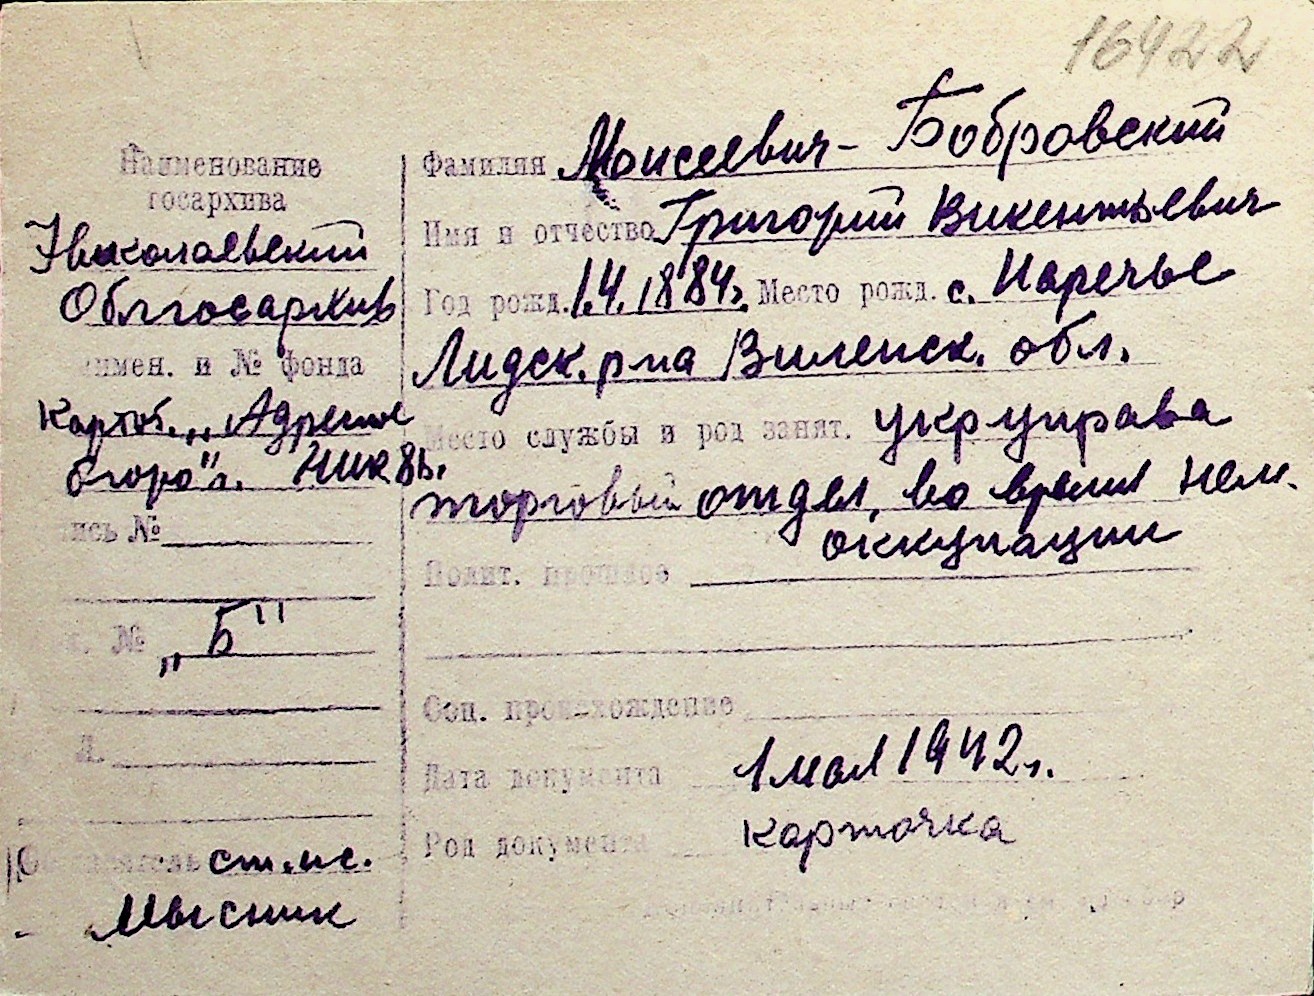 16422
Наименование
госархива
Николаевский
Облгосархив
имен. и № фонда
Картот. „Адресное
бюро" г. Ник-в.
ись №
№ „Б"
Л.
ст. ис.
Мысник
Фамилия Моисеевич-Бобровский
Имя и отчество Григорий Викентьевич
Год рожд. 1.4.1884г. Место рожд. с. Наречье
Лидск. р-на Виленск. обл.
Место службы и род занят. укр управа
торговый отдел, во время нем.
оккупации
Полит. прошлое
Соц. происхождение
Дата документа 1 мая 1942 г.
Род документа карточка